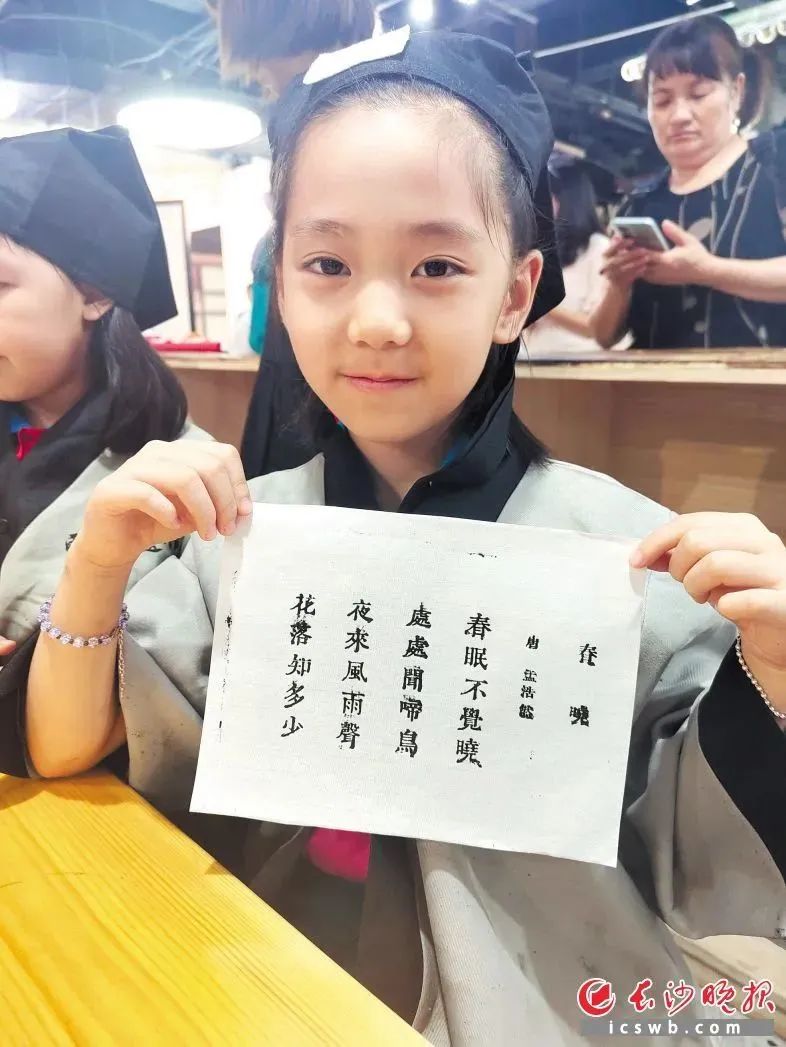 春曉
唐 孟浩然
春眠不覺曉
處處聞啼鳥
夜來風雨聲
花落知多少
长沙晚报
icswb.com